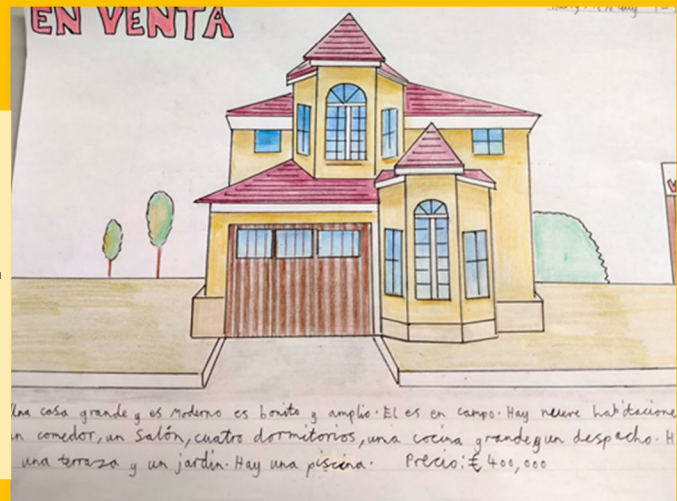 EN VENTA
Una casa grande y es moderno es bonito y amplio. El es en campo. Hay nueve habitacione
un comedor, un salón, cuatro dormitorios, una cocina grande y un despacho. H
una terraza y un jardín. Hay una piscina. Precio: £ 400,000